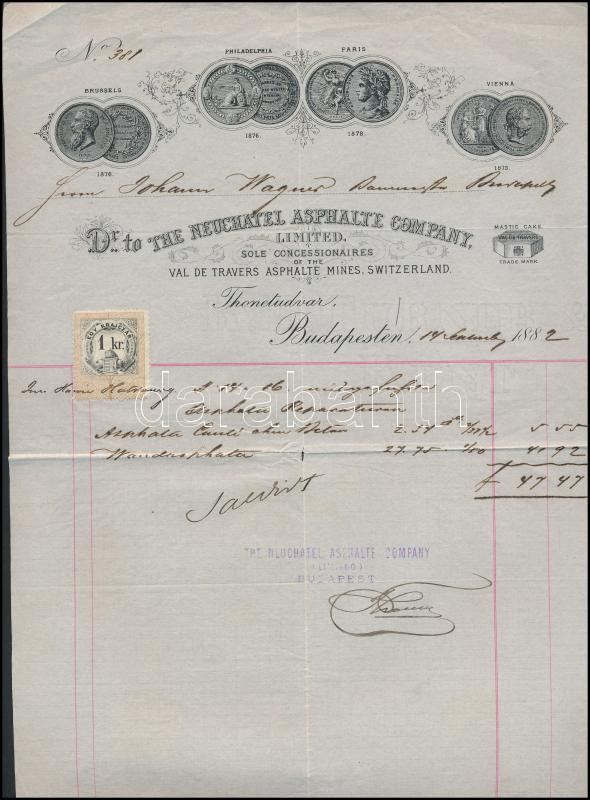 No 381
BRUSSELS
PHILADELPHIA
PARIS
VIENNA
1876.
1876.
1878.
1873.
Herrn Johann Wagner Baumeister Budapest
Dr. to THE NEUCHATEL ASPHALTE COMPANY,
LIMITED.
SOLE CONCESSIONAIRES
OF THE
VAL DE TRAVERS ASPHALTE MINES, SWITZERLAND.
MASTIC CAKE.
VAL DE TRAVERS
TRADE MARK
Thonetudvar.
Budapesten, 14 1882
EGY KRAJCZÁR
1 kr.
Im Hause
Asphalte
Asphalte Coulé ohne Beton 2.54 5 55
Wandasphalte 27.75 41 92
f 47 47
Saldirt
THE NEUCHATEL ASPHALTE COMPANY
(LIMITED)
BUDAPEST
darabanth